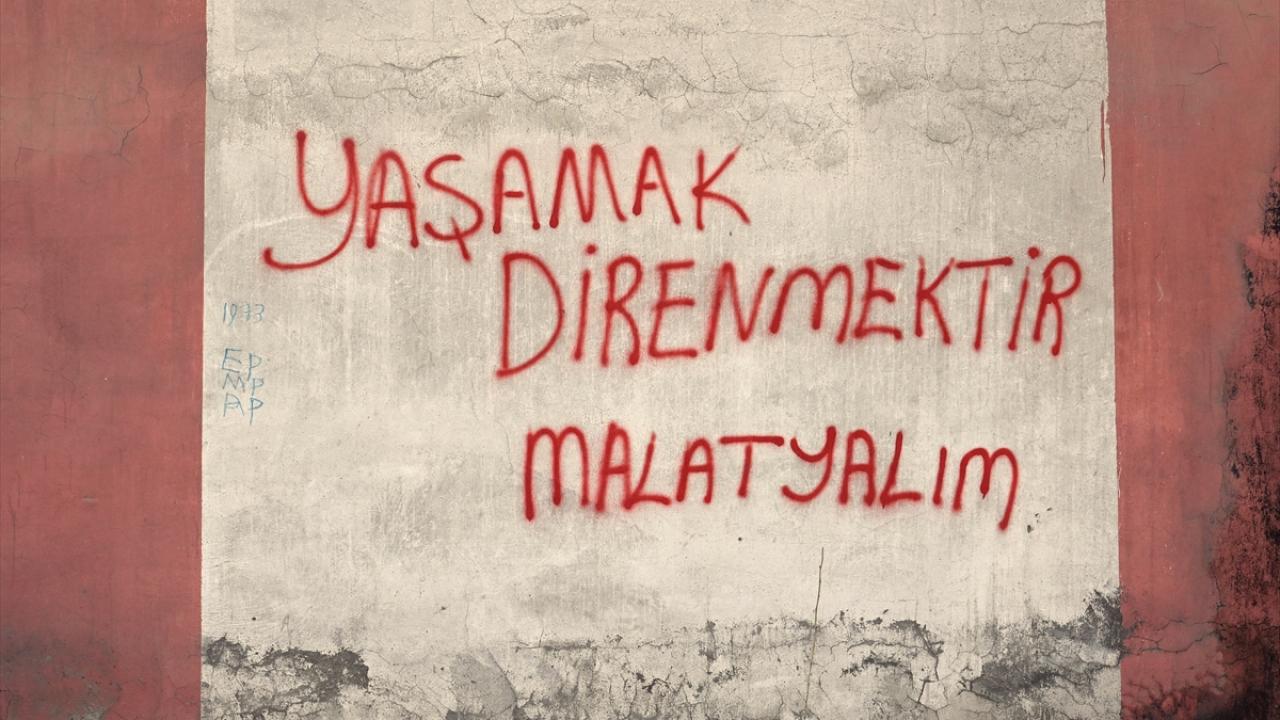 YAŞAMAK
DİRENMEKTİR
MALATYALIM
Ep
Mp
Ap